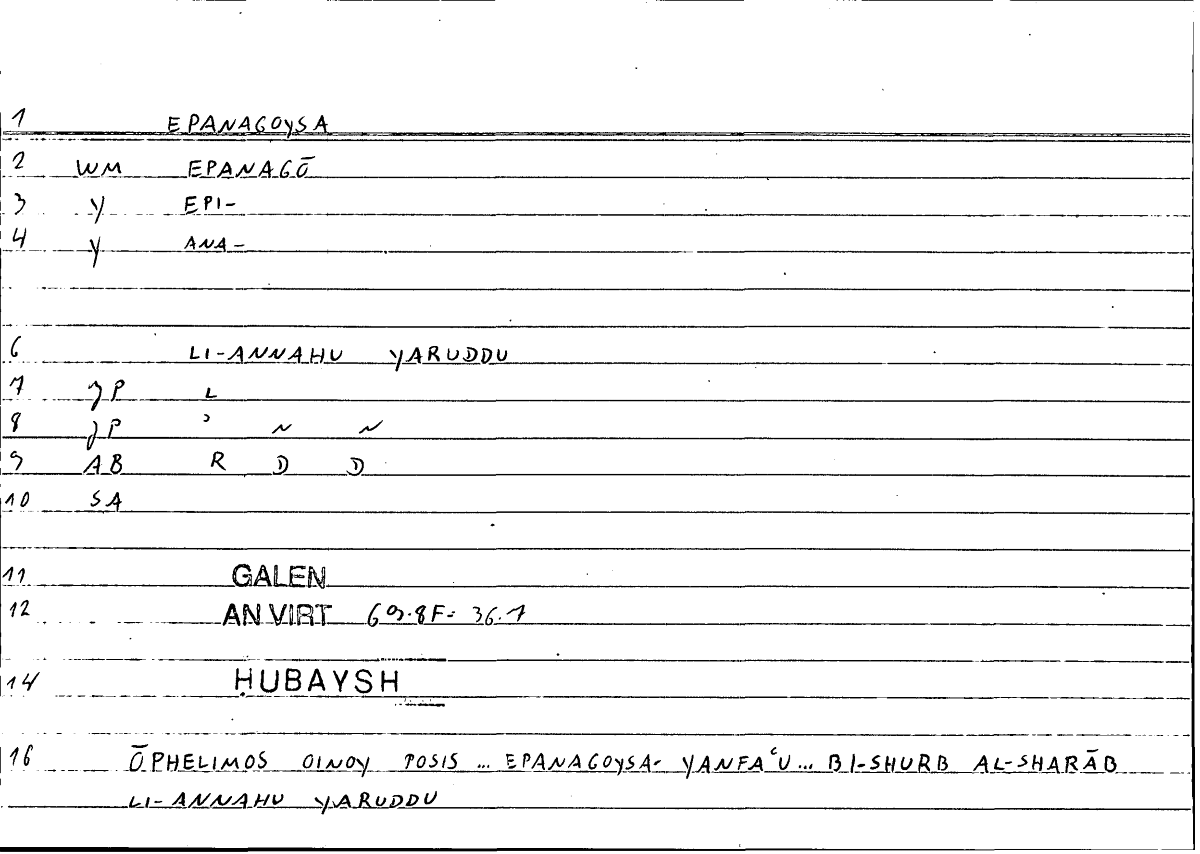 1 EPANAGOYSA
2 WM EPANAGŌ
3 Y EPI-
4 Y ANA-
6 LI-ANNAHU YARUDDU
7 JP L
8 JP ʾ N N
9 AB R D D
10 SA
11 GALEN
12 AN VIRT 69.8F- 36.1
14 ḤUBAYSH
16 ŌPHELIMOS OINOY POSIS ... EPANAGOYSA- YANFAʿU ... BI-SHURB AL-SHARĀB
LI-ANNAHU YARUDDU